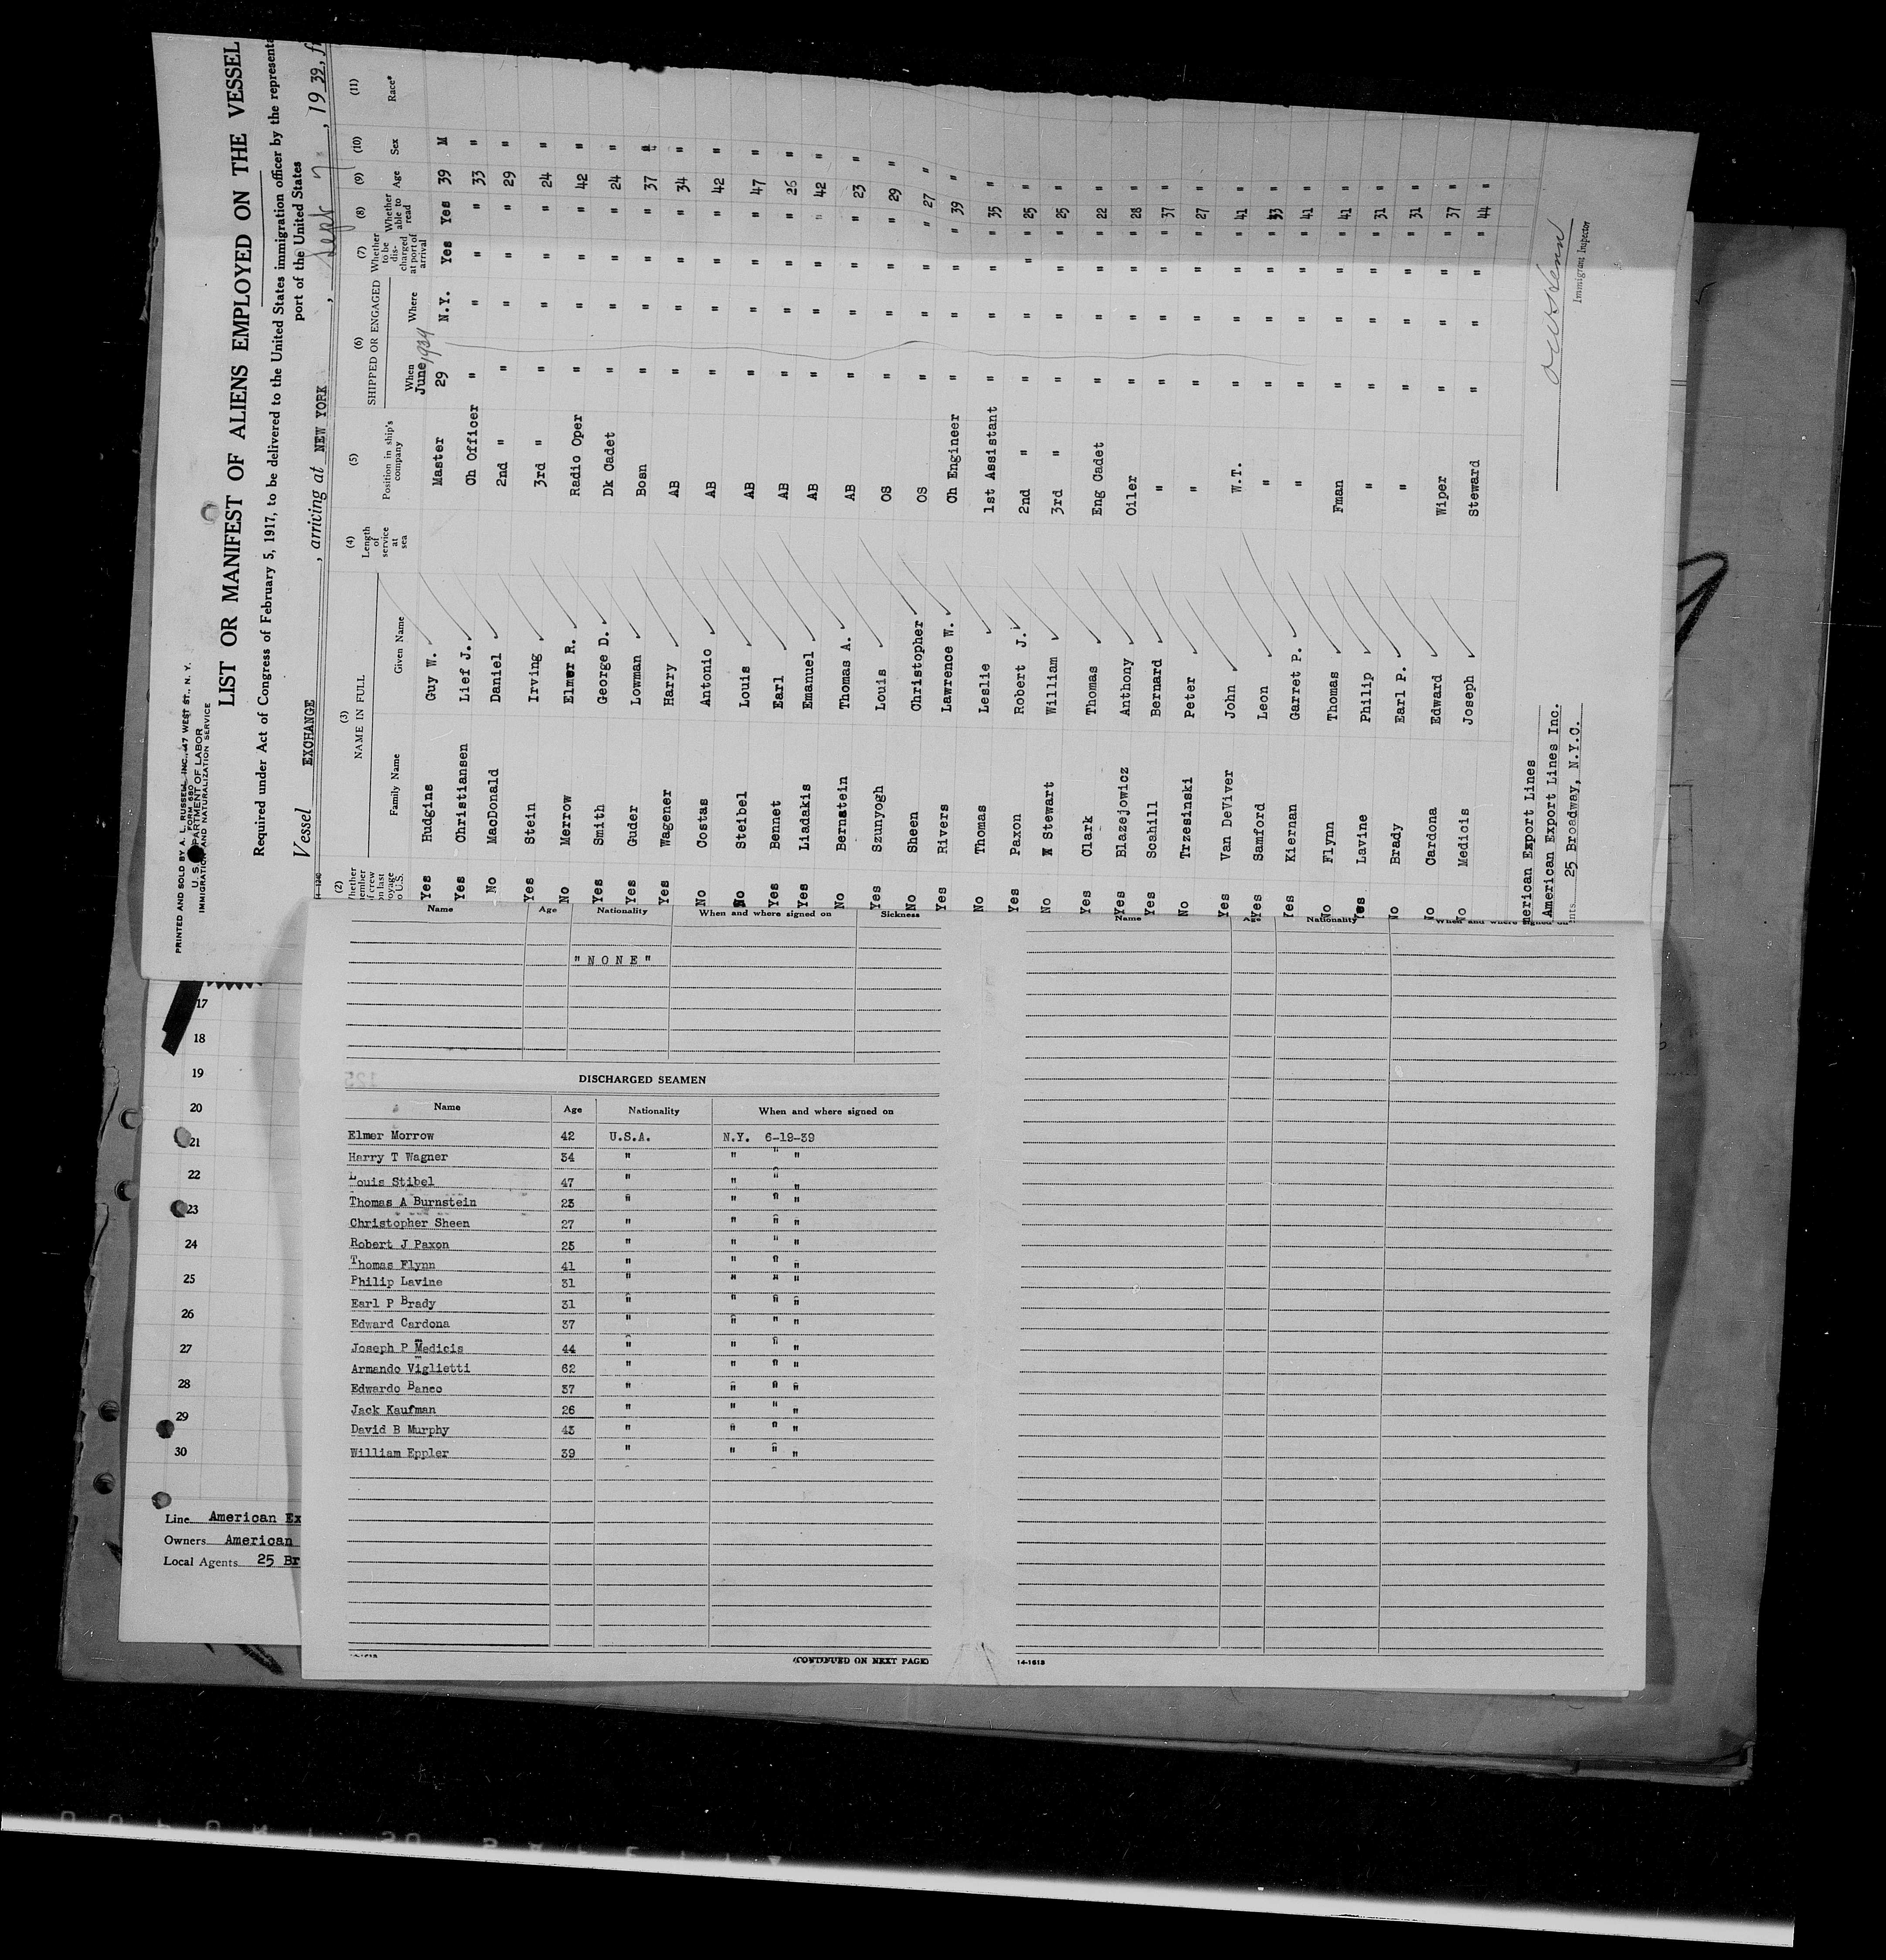 PRINTED AND SOLD BY A. L. RUSSELL, INC., 47 WEST ST., N. Y.
FORM 680
U. S. DEPARTMENT OF LABOR
IMMIGRATION AND NATURALIZATION SERVICE
LIST OR MANIFEST OF ALIENS EMPLOYED ON THE VESSEL
Required under Act of Congress of February 5, 1917, to be delivered to the United States immigration officer by the representa
port of the United States
Vessel EXCHANGE, arriving at NEW YORK, Sept 7, 1939, f
(2) (3) (4) (5) (6) (7) (8) (9) (10) (11)
NAME IN FULL SHIPPED OR ENGAGED
Family Name Given Name Length of service at sea Position in ship's company When Where Whether to be discharged at port of arrival Whether able to read Age Sex Race*
June 1939
Yes Hudgins Guy W. Master 29 N.Y. Yes Yes 39 M
Yes Christiansen Lief J. Ch Officer " " " " 33 "
No MacDonald Daniel 2nd " " " " " 29 "
Yes Stein Irving 3rd " " " " " 24 "
No Merrow Elmer R. Radio Oper " " " " 42 "
Yes Smith George D. Dk Cadet " " " " 24 "
Yes Guder Lowman Bosn " " " " 37 "
Yes Wagener Harry AB " " " " 34 "
No Costas Antonio AB " " " " 42 "
No Steibel Louis AB " " " " 47 "
Yes Bennet Earl AB " " " " 26 "
Yes Liadakis Emanuel AB " " " " 42 "
No Bernstein Thomas A. AB " " " " 23 "
Yes Szunyogh Louis OS " " " " 29 "
No Sheen Christopher OS " " " " 27 "
Yes Rivers Lawrence W. Ch Engineer " " " " 39 "
No Thomas Leslie 1st Assistant " " " " 35 "
Yes Paxon Robert J. 2nd " " " " " 25 "
No Stewart William 3rd " " " " " 25 "
Yes Clark Thomas Eng Cadet " " " " 22 "
Yes Blazejowicz Anthony Oiler " " " " 28 "
Yes Scahill Bernard " " " " " 37 "
No Trzesinski Peter " " " " " 27 "
Yes Van DeViver John W.T. " " " " 41 "
Yes Samford Leon " " " " " "
Yes Kiernan Garret P. " " " " " 41 "
No Flynn Thomas Fman " " " " 41 "
Yes Lavine Philip " " " " " 31 "
No Brady Earl P. " " " " " 31 "
No Cardona Edward Wiper " " " " 37 "
No Medicis Joseph Steward " " " " 44 "
merican Export Lines
American Export Lines Inc.
25 Broadway, N.Y.C.
Immigrant Inspector
Name Age Nationality When and where signed on Sickness
"NONE"
DISCHARGED SEAMEN
Name Age Nationality When and where signed on
Elmer Morrow 42 U.S.A. N.Y. 6-19-39
Harry T Wagner 34 " " " "
Louis Stibel 47 " " " "
Thomas A Burnstein 23 " " " "
Christopher Sheen 27 " " " "
Robert J Paxon 25 " " " "
Thomas Flynn 41 " " " "
Philip Lavine 31 " " " "
Earl P Brady 31 " " " "
Edward Cardona 37 " " " "
Joseph P Medicis 44 " " " "
Armando Viglietti 62 " " " "
Edwardo Banco 37 " " " "
Jack Kaufman 26 " " " "
David B Murphy 43 " " " "
William Eppler 39 " " " "
(CONTINUED ON NEXT PAGE)
Name Nationality When and where signed on
14-1618
17
18
19
20
21
22
23
24
25
26
27
28
29
30
Line American Ex
Owners American
Local Agents 25 Br